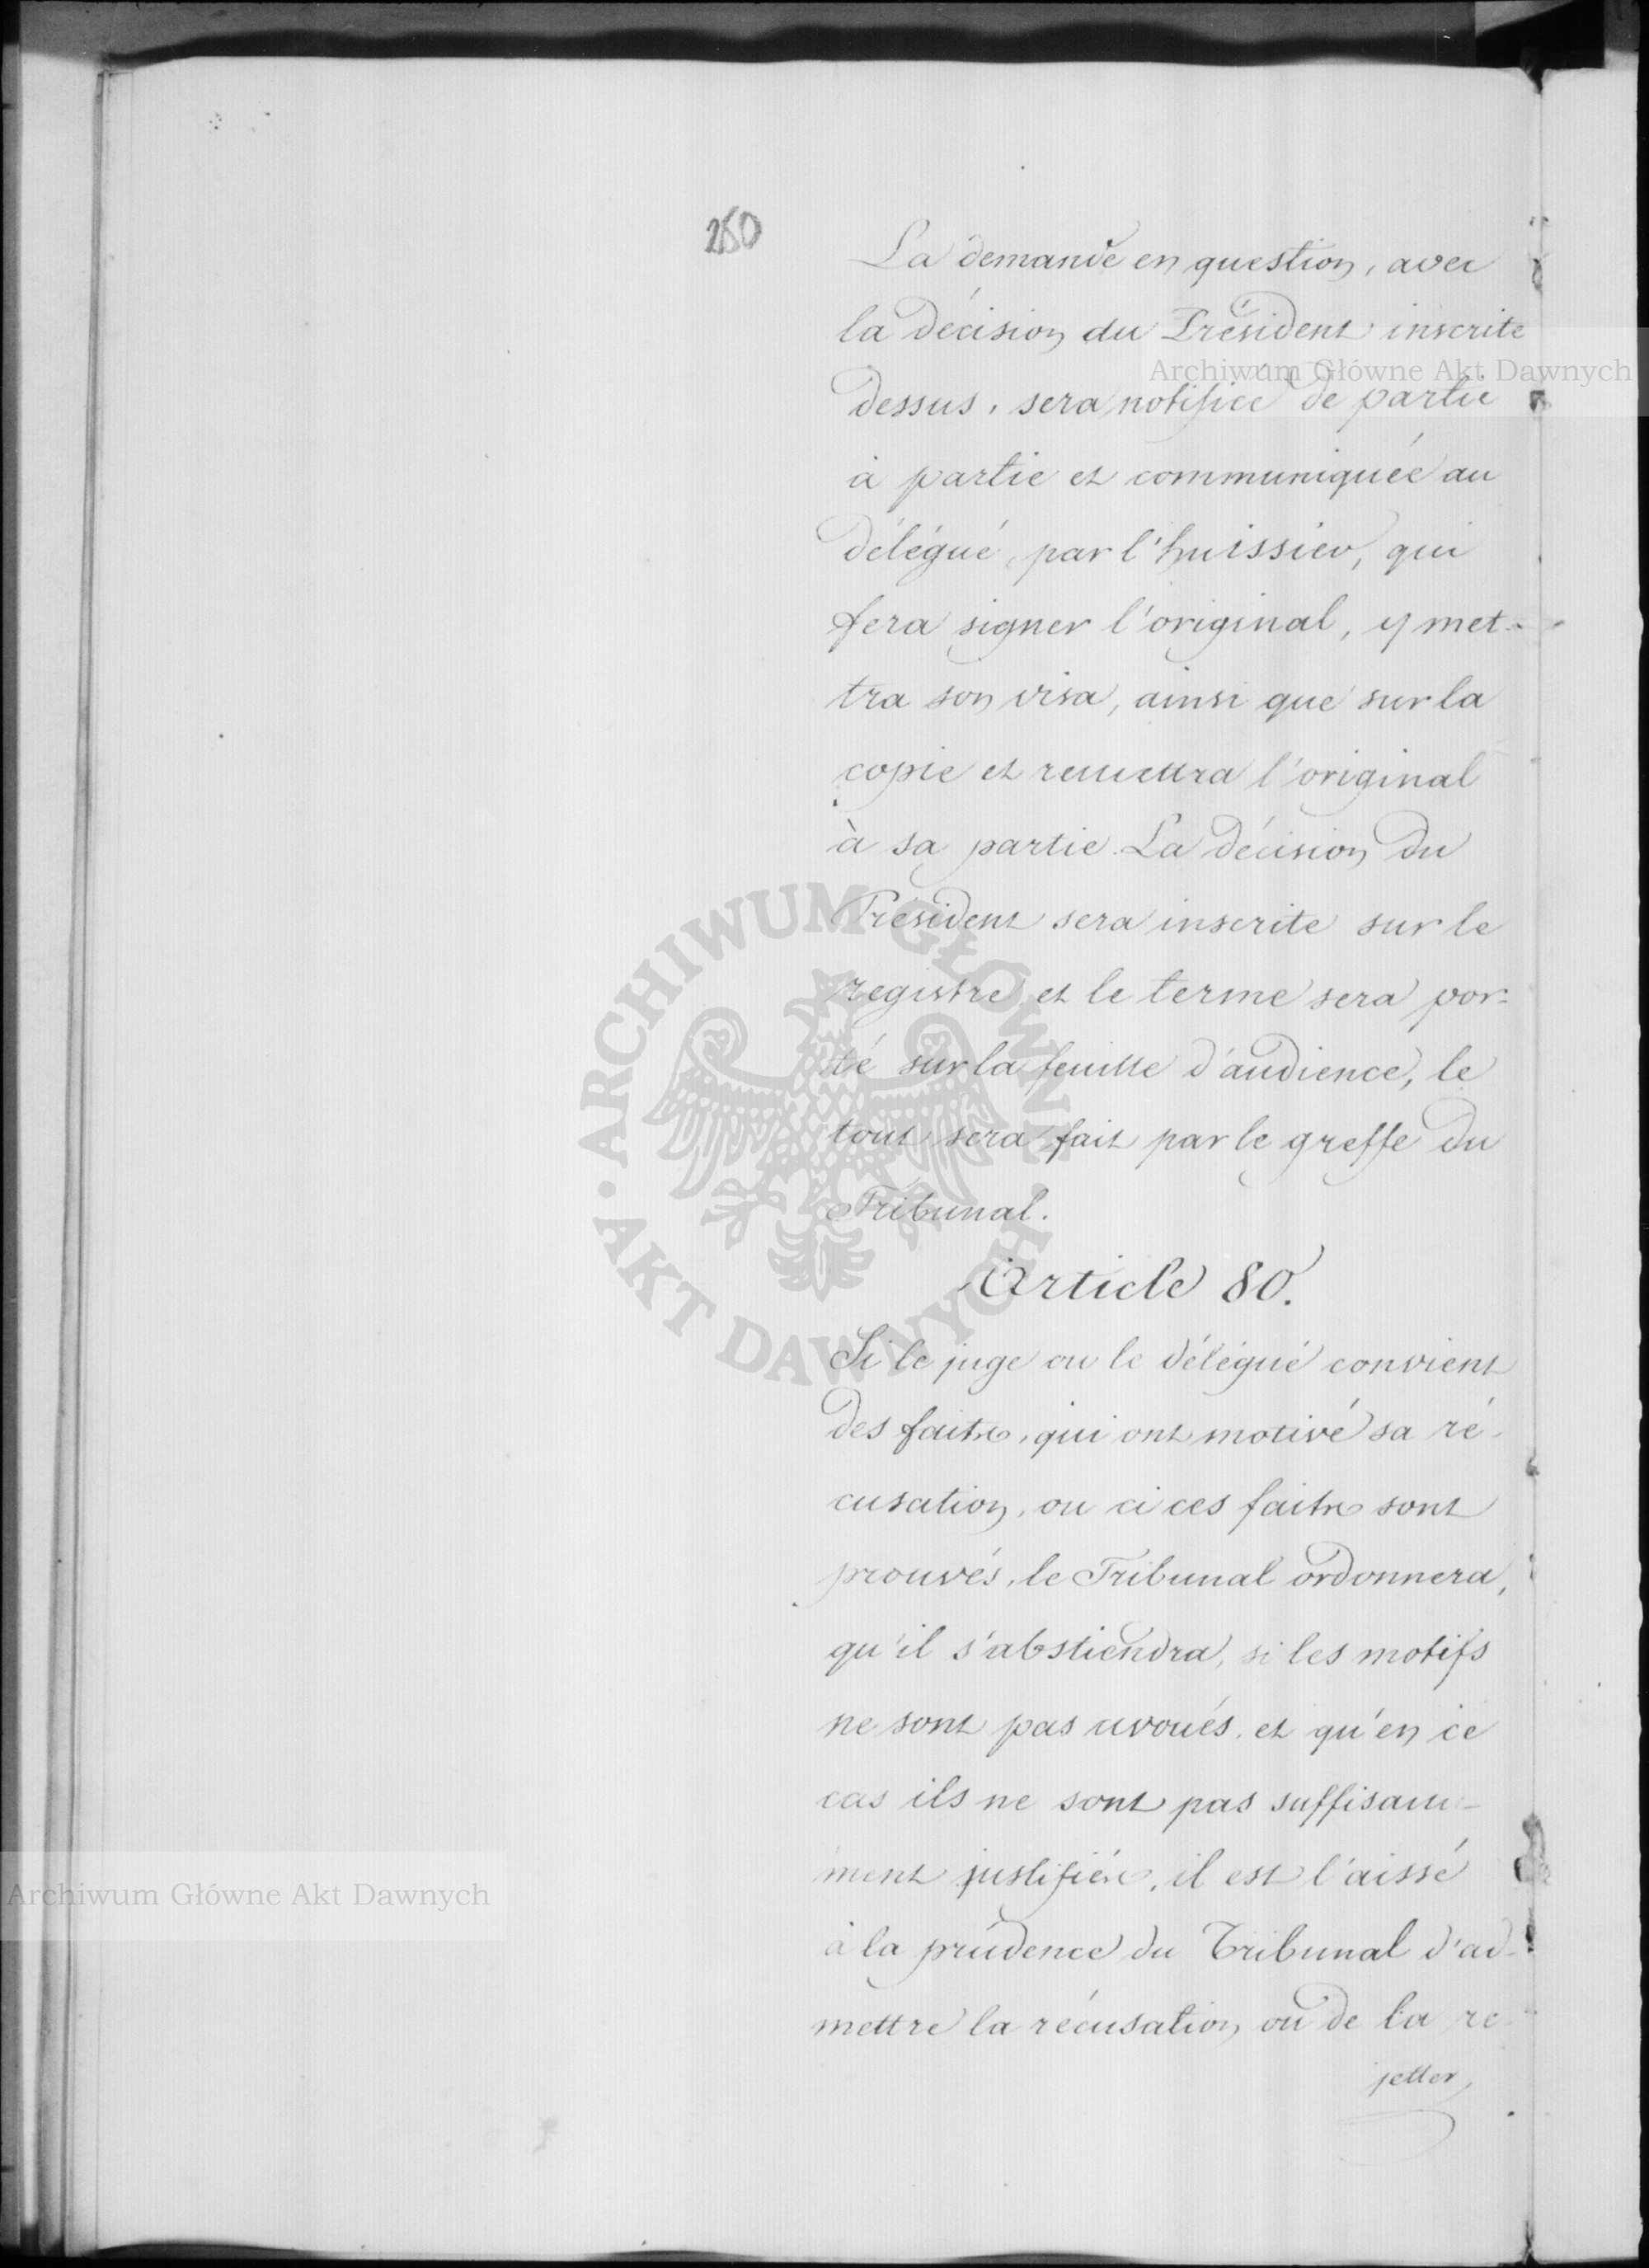 250
La demande en question, avec
la décision du Président inscrite
dessus, sera notifiée de partie
à partie et communiquée au
délégué, par l'huissier, qui
fera signer l'original, y met-
tra son visa, ainsi que sur la
copie et remettra l'original
à sa partie. La décision du
Président sera inscrite sur le
registre, et le terme sera por-
té sur la feuille d'audience, le
tout sera fait par le greffe du
Tribunal.
Article 80.
Si le juge ou le délégué convient
des faits, qui ont motivé sa ré-
cusation, ou ci ces faits sont
prouvés, le Tribunal ordonnera,
qu'il s'abstiendra, si les motifs
ne sont pas avoués, et qu'en ce
cas ils ne sont pas suffisam-
ment justifiés, il est l'aissé
à la prudence du Tribunal d'ad-
mettre la récusation ou de la re-
jetter,
Archiwum Główne Akt Dawnych
ARCHIWUM GŁÓWNE • AKT DAWNYCH •
Archiwum Główne Akt Dawnych